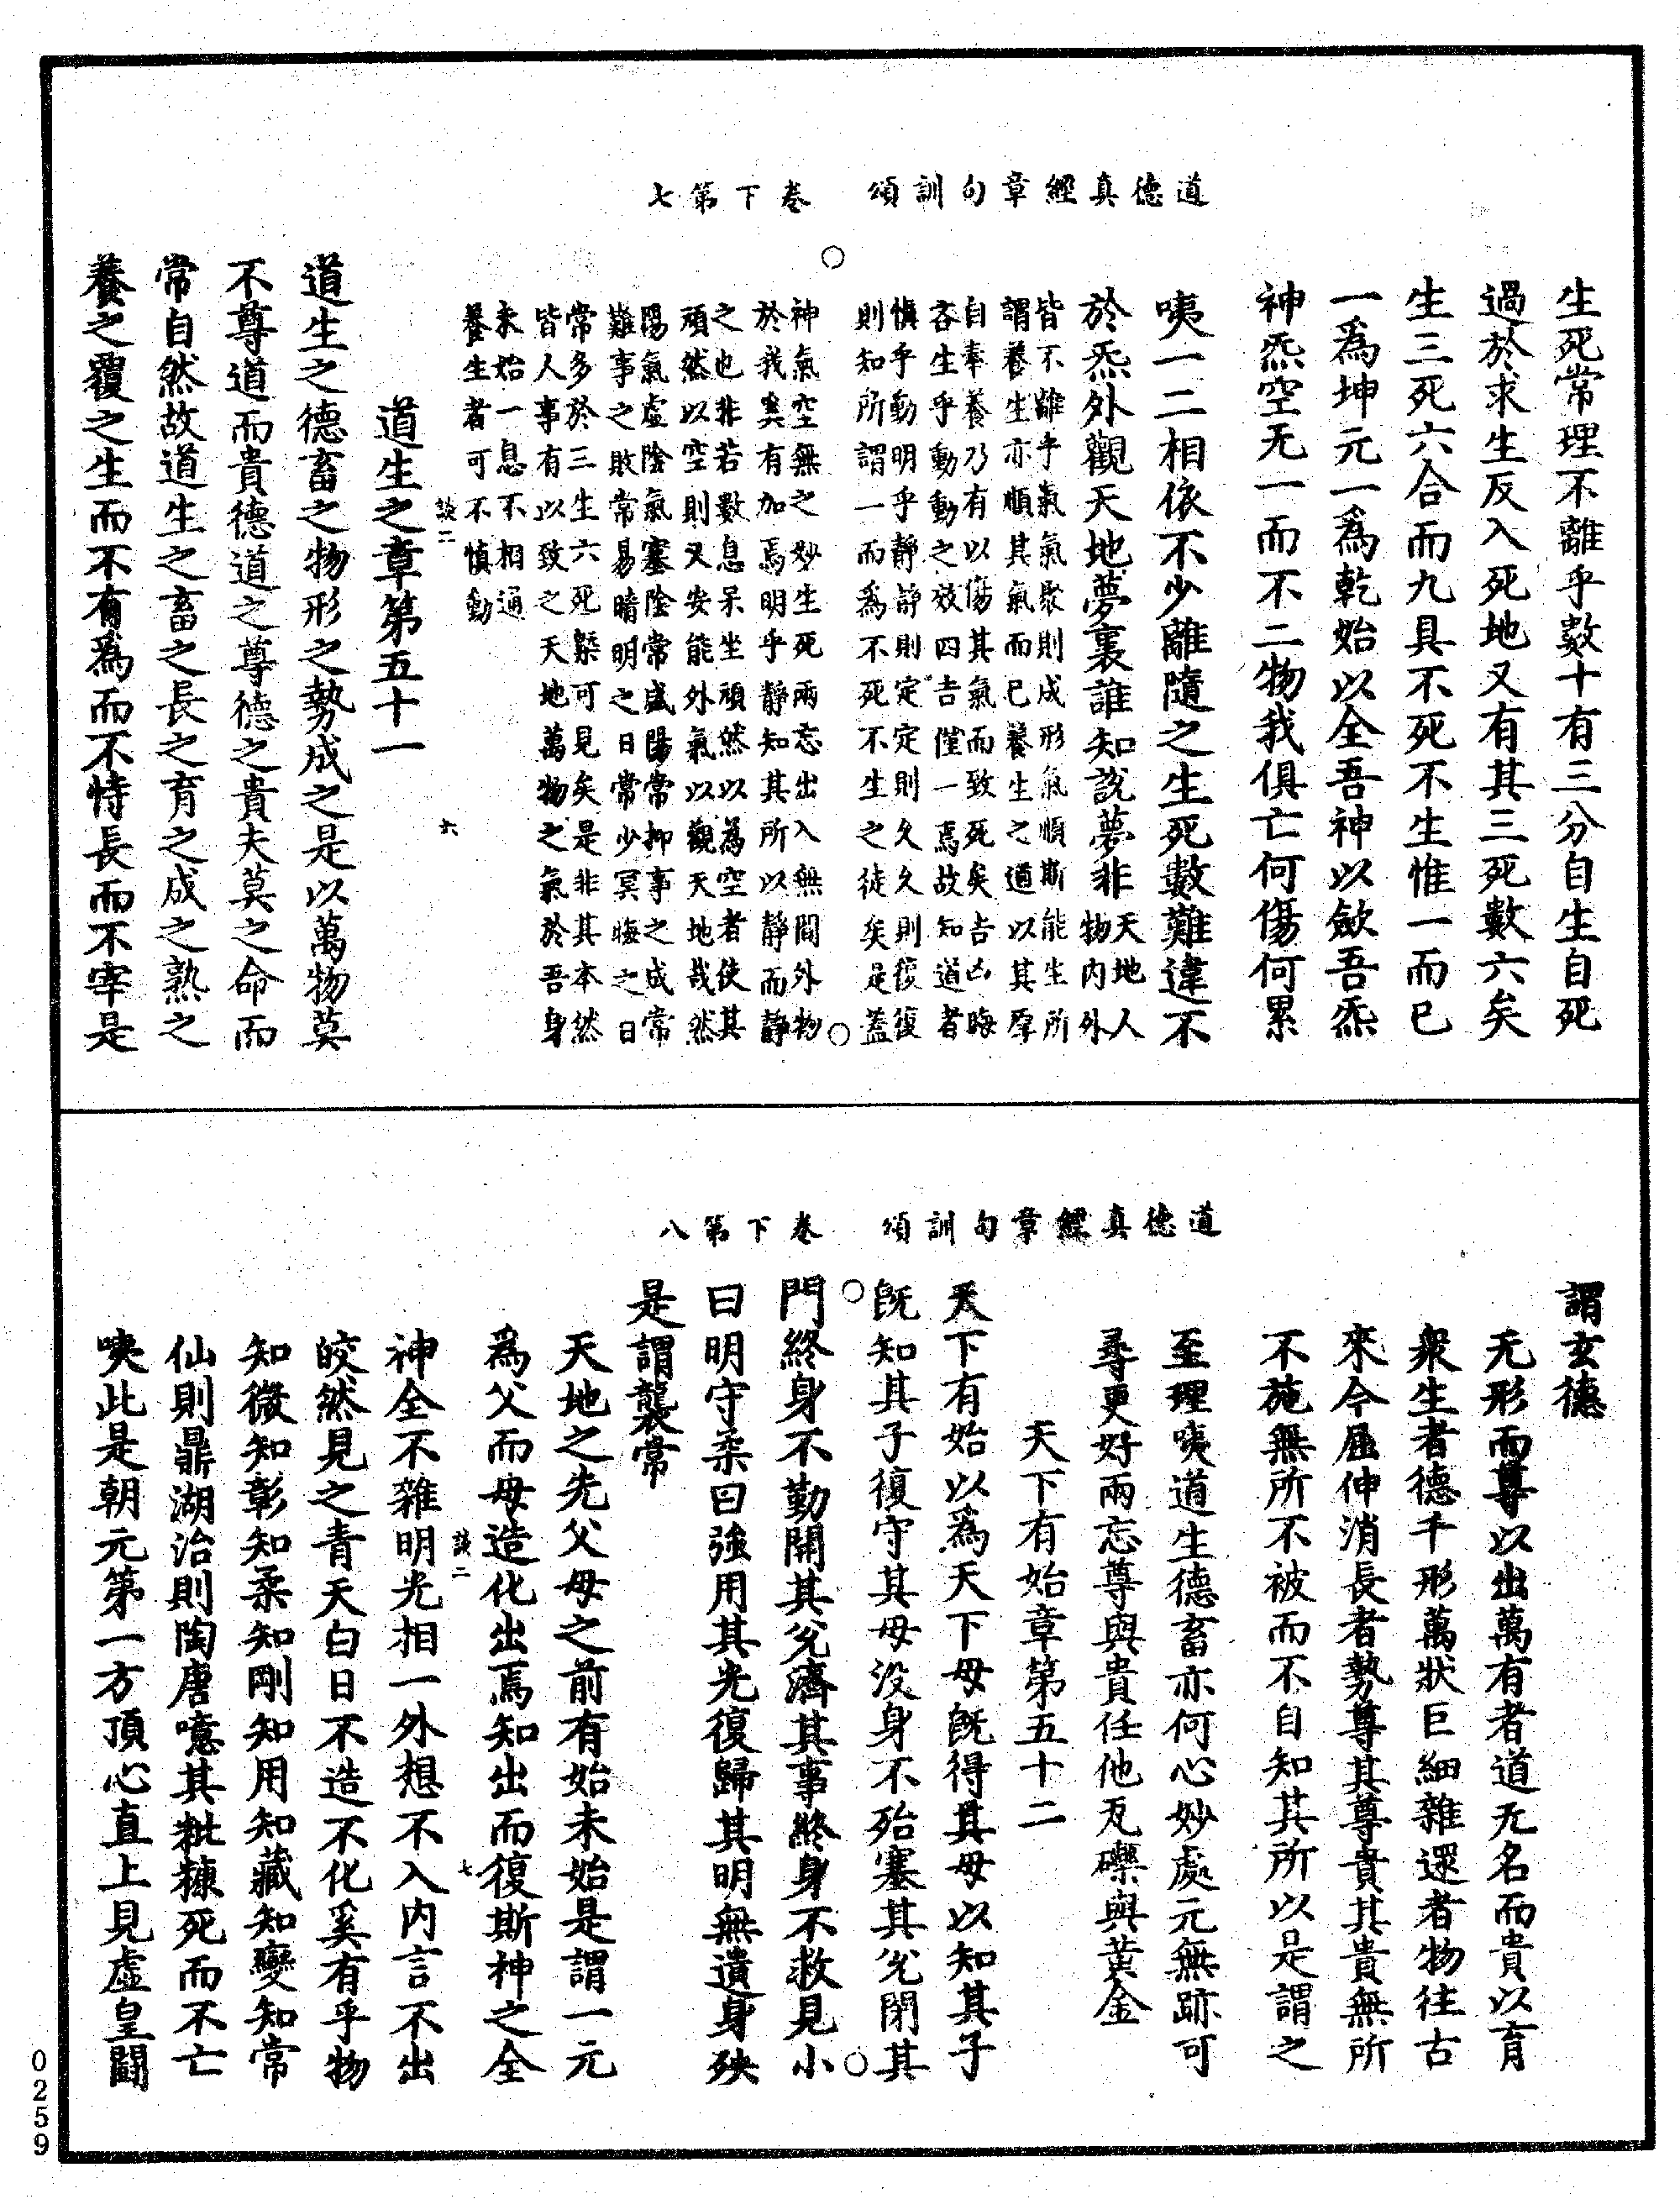 道德真經章句訓頌　卷下第七
生死常理不離乎數十有三分自生自死
過於求生反入死地又有其三死數六矣
生三死六合而九具不死不生惟一而已
一爲坤元一爲乾始以全吾神以斂吾炁
神炁空无一而不二物我俱亡何傷何累
咦一二相依不少離隨之生死數難違不
於炁外觀天地夢裏誰知說夢非天地人
物内外
皆不離乎氣氣聚則成形氣順斯能生所
謂養生亦順其氣而已養生之道以其厚
自奉養乃有以傷其氣而致死矣吉凶晦
吝生乎動動之效四吉僅一焉故知道者
慎乎動明乎靜靜則定定則久久則復復
則知所謂一而爲不死不生之徒矣是蓋
神氣空無之妙生死兩忘出入無間外物
於我奚有加焉明乎靜知其所以靜而靜
之也非若數息呆坐頑然以為空者使其
頑然以空則又安能外氣以觀天地哉然
陽氣虛陰氣塞陰常盛陽常抑事之成常
難事之敗常易晴明之日常少冥晦之日
常多於三生六死槩可見矣是非其本然
皆人事有以致之天地萬物之氣於吾身
未始一息不相通
養生者可不慎動
談二　六
道生之章第五十一
道生之德畜之物形之勢成之是以萬物莫
不尊道而貴德道之尊德之貴夫莫之命而
常自然故道生之畜之長之育之成之熟之
養之覆之生而不有爲而不恃長而不宰是
道德真經章句訓頌　卷下第八
謂玄德
无形而尊以出萬有者道无名而貴以育
衆生者德千形萬狀巨細雜還者物往古
來今屈伸消長者勢尊其尊貴其貴無所
不施無所不被而不自知其所以是謂之
至理咦道生德畜亦何心妙處元無跡可
尋更好兩忘尊與貴任他瓦礫與黃金
天下有始章第五十二
天下有始以爲天下母旣得其母以知其子
旣知其子復守其母没身不殆塞其兌閉其
門終身不勤開其兌濟其事終身不救見小
曰明守柔曰強用其光復歸其明無遺身殃
是謂襲常
天地之先父母之前有始未始是謂一元
爲父而母造化出焉知出而復斯神之全
談二　七
神全不雜明光相一外想不入内言不出
皎然見之青天白日不造不化奚有乎物
知微知彰知柔知剛知用知藏知變知常
仙則鼎湖治則陶唐噫其粃糠死而不亡
咦此是朝元第一方頂心直上見虛皇闢
0259